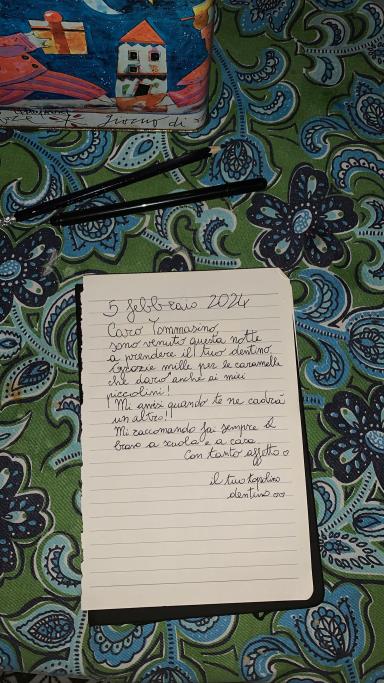 giorno di
5 febbraio 2024
Caro Tommasino,
sono venuto questa notte
a prendere il tuo dentino
Grazie mille per le caramelle
che darò anche ai miei
piccolini!
Mi avvisi quando te ne cadrà
un altro!!
Mi raccomando fai sempre il
bravo a scuola e a casa.
Con tanto affetto
il tuo topolino
dentino